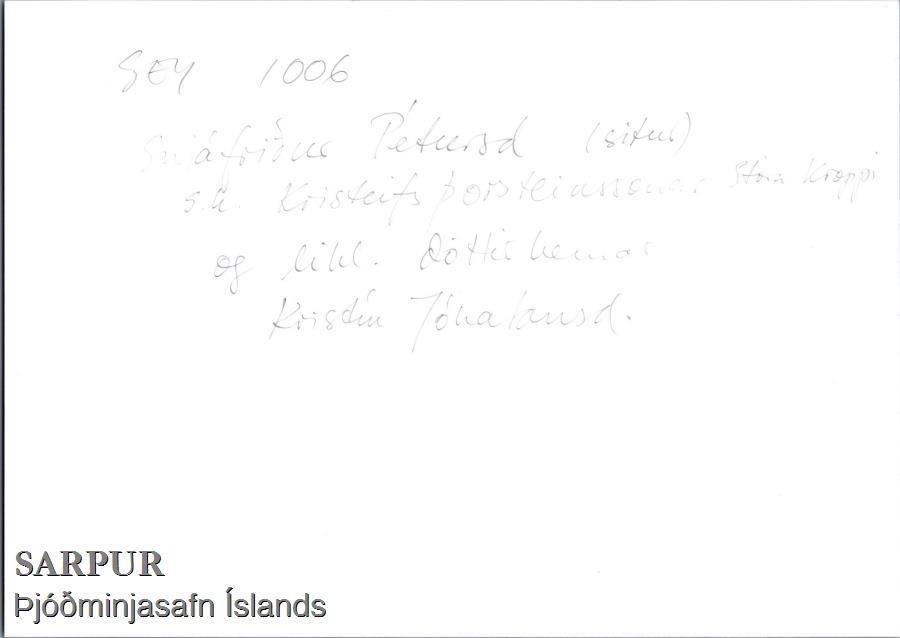 GEY 1006
Snjáfríður Pétursd (situr)
s.k. Kristleifs Þorsteinssonar Stóra Kroppi
og líkl. dóttir hennar
Kristín Jónatansd.
SARPUR
Þjóðminjasafn Íslands